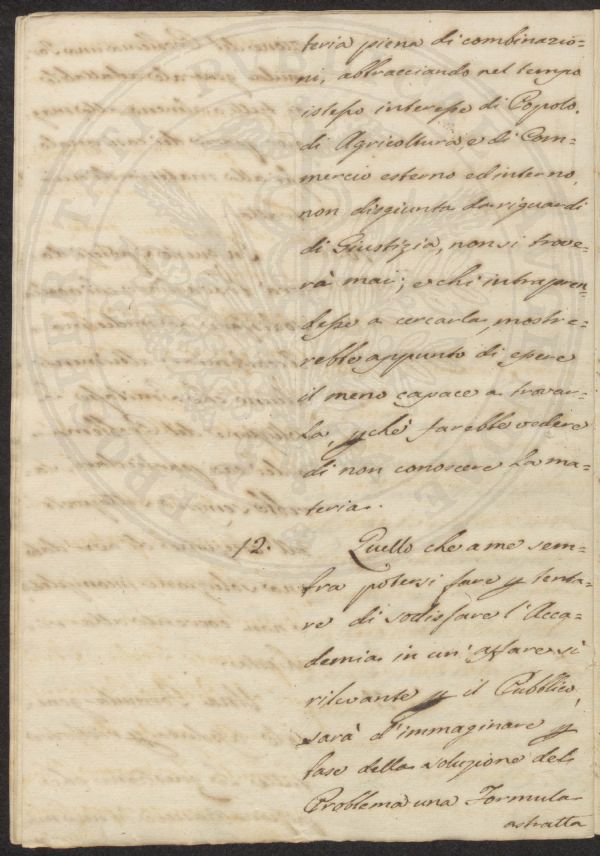 teria piena di combinazio=
ni, abbracciando nel tempo
istesso interesse di Popolo,
di Agricoltura e di Com=
mercio esterno ed interno,
non disgiunta da riguardi
di Giustizia, non si trove=
rà mai; e chi intrapren=
desse a cercarla, mostre=
rebbe appunto di essere
il meno capace a trovar=
la, pchè farebbe vedere
di non conoscere la ma=
teria.
12. Quello che a me sem=
bra potersi fare p tenta=
re di sodisfare l'Acca=
demia in un' affare sì
rilevante p il Pubblico,
sarà d'immaginare p
base della soluzione del
Problema una Formula
astratta